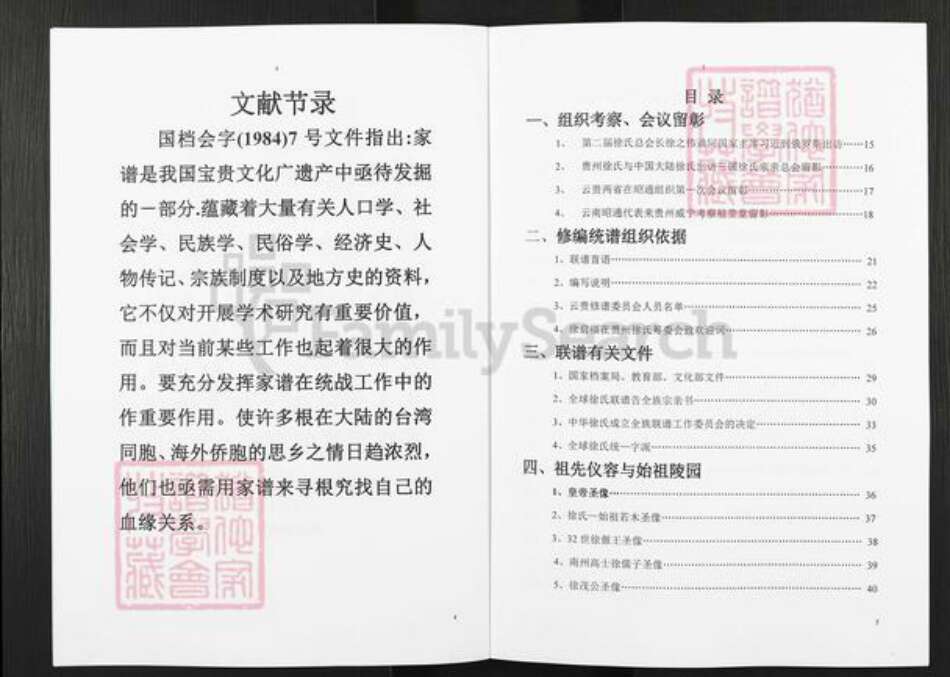 文献节录
国档会字(1984)7 号文件指出:家
谱是我国宝贵文化广遗产中亟待发掘
的一部分.蕴藏着大量有关人口学、社
会学、民族学、民俗学、经济史、人
物传记、宗族制度以及地方史的资料，
它不仅对开展学术研究有重要价值，
而且对当前某些工作也起着很大的作
用。要充分发挥家谱在统战工作中的
作重要作用。使许多根在大陆的台湾
同胞、海外侨胞的思乡之情日趋浓烈，
他们也亟需用家谱来寻根究找自己的
血缘关系。
4
目 录
一、组织考察、会议留彰
1、 第二届徐氏总会长徐之伟 国家主席习近 出访……15
2、 贵州徐氏与中国大陆徐氏 徐氏宗亲总会留影……16
3、 云贵两省在昭通组织第一次会议留影……17
4、 云南昭通代表来贵州威宁考察 留影……18
二、修编统谱组织依据
1、联谱首语……21
2、编写说明……22
3、云贵修谱委员会人员名单……25
4、徐启福在贵州徐氏筹委会致欢迎词……26
三、联谱有关文件
1、国家档案局、教育部、文化部文件……29
2、全球徐氏联谱告全族宗亲书……30
3、中华徐氏成立全族联谱工作委员会的决定……33
4、全球徐氏统一字派……35
四、祖先仪容与始祖陵园
1、皇帝圣像……36
2、徐氏一始祖若木圣像……37
3、32 世徐偃王圣像……38
4、南州高士徐儒子圣像……39
5、徐茂公圣像……40
5
FamilySearch